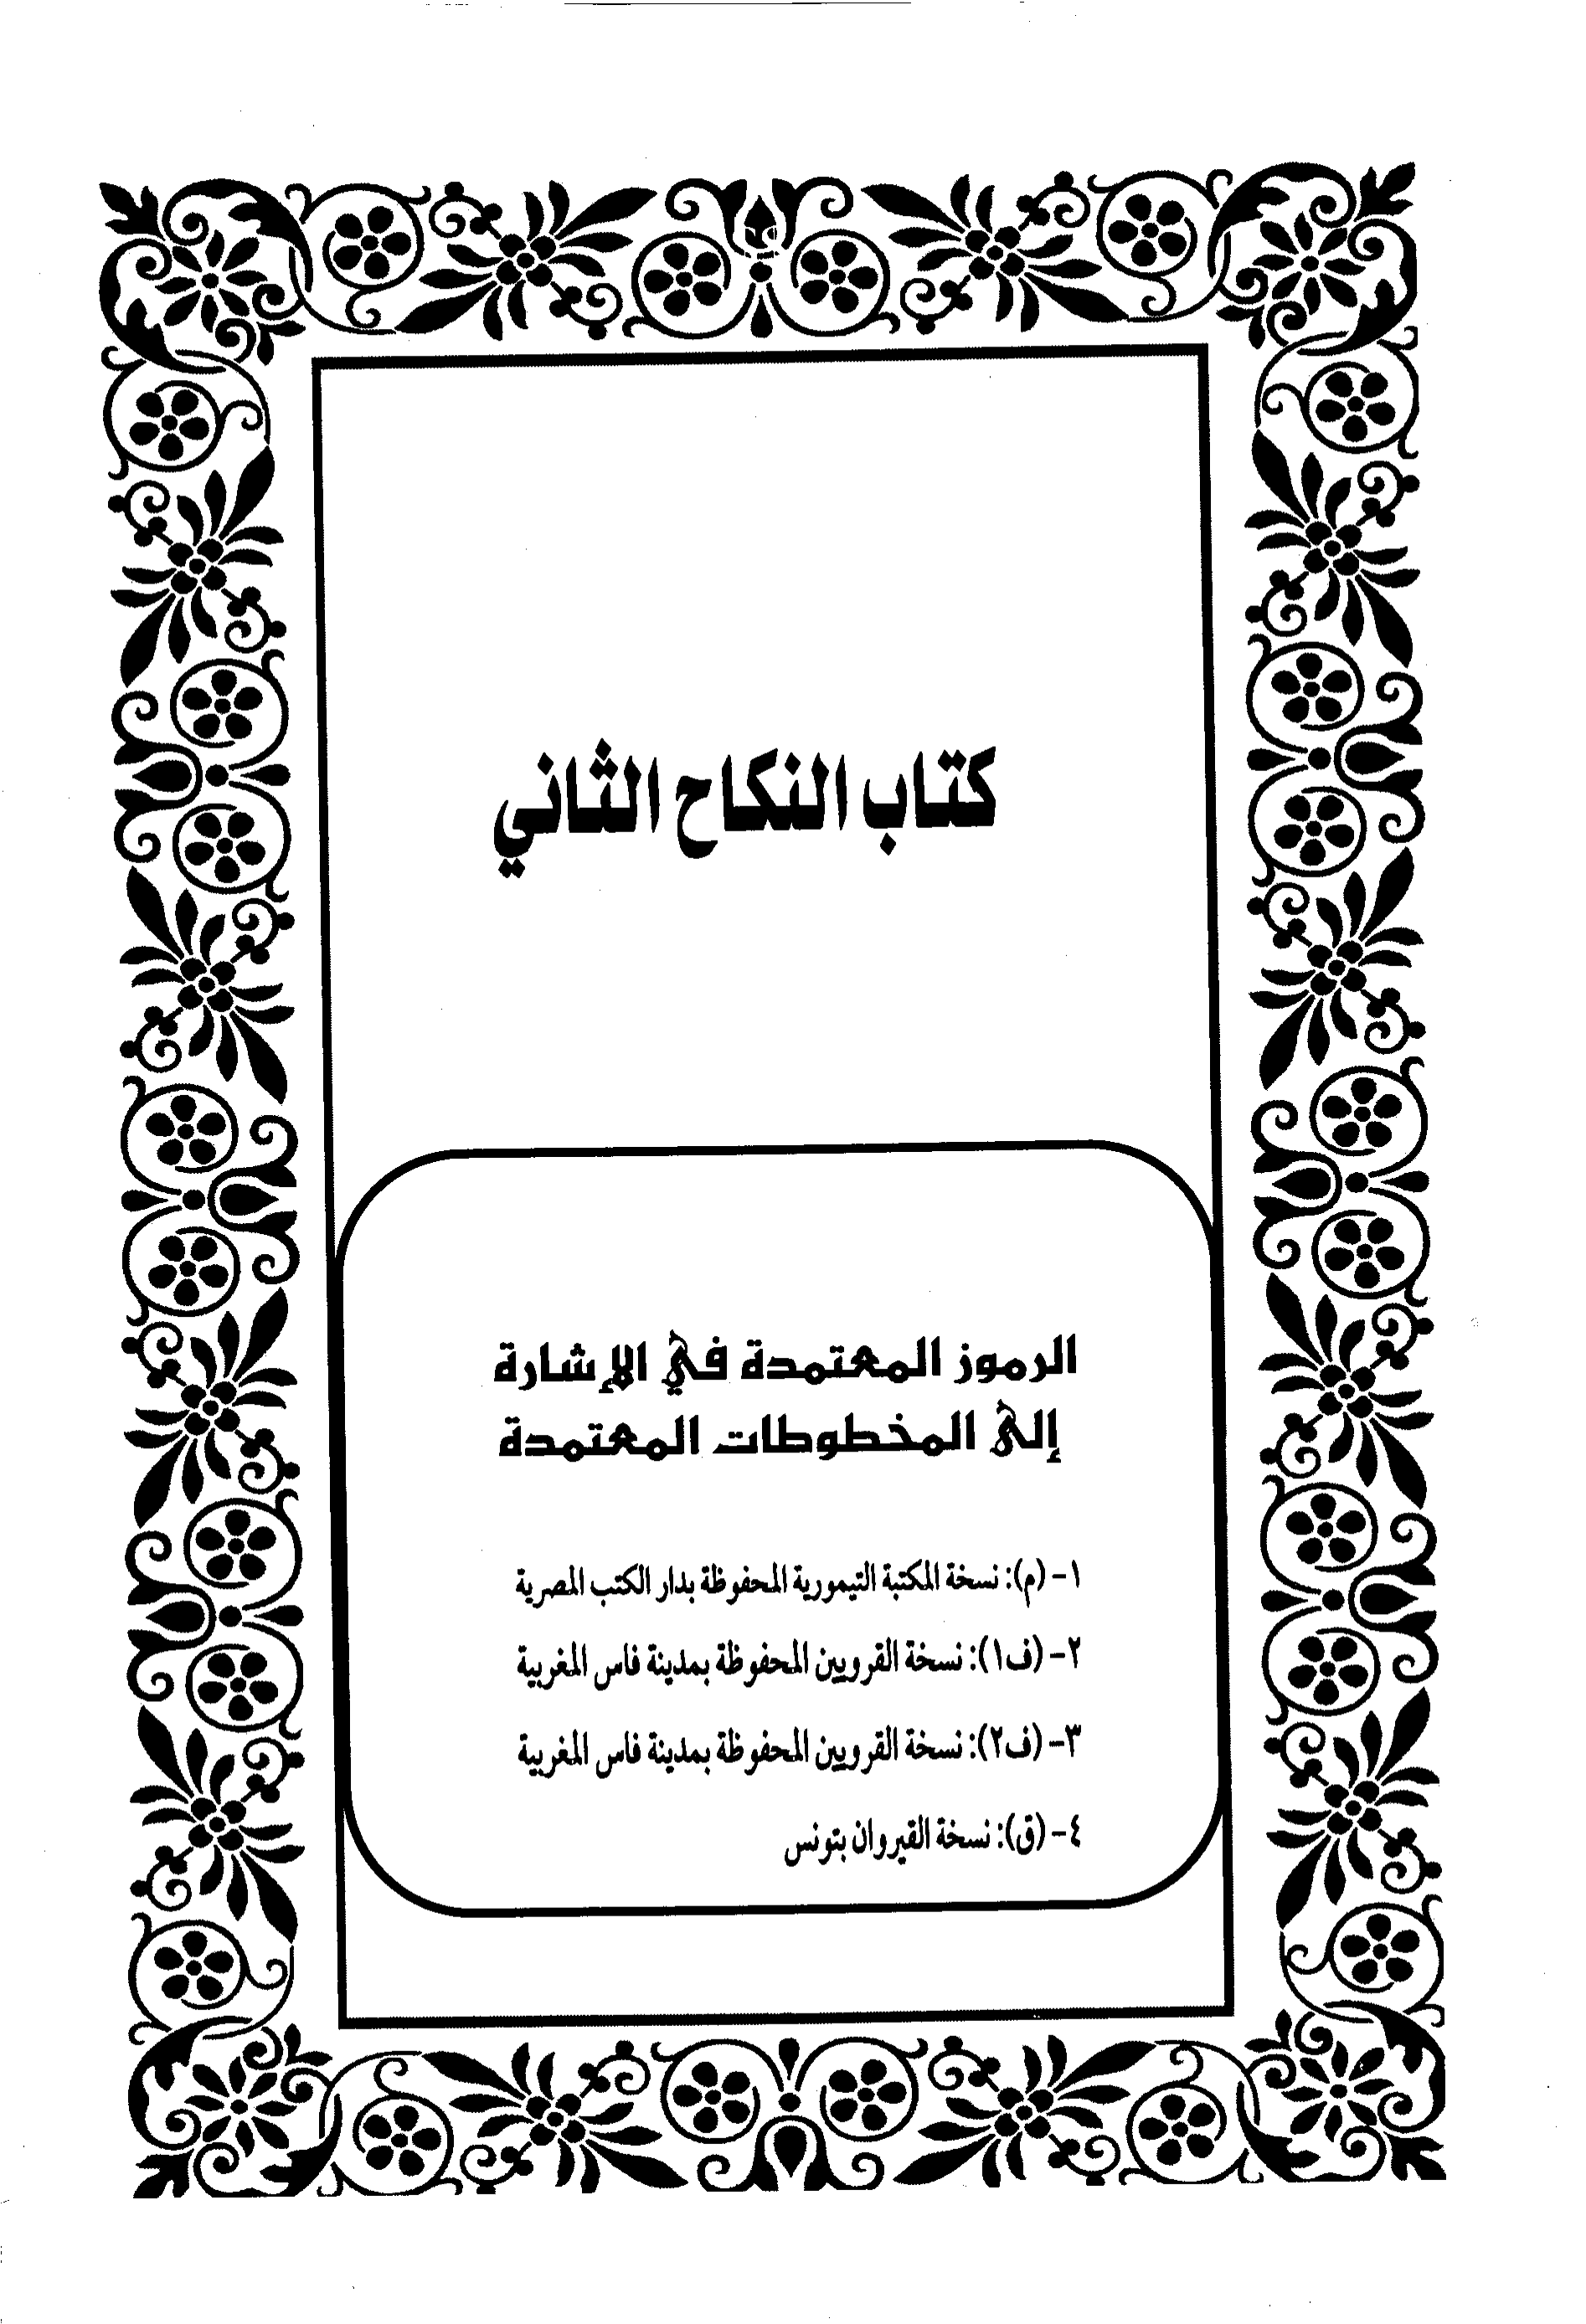 كتاب النكاح الثاني
الرموز المعتمدة في الإشارة
إلى المخطوطات المعتمدة
١- (م): نسخة المكتبة التيمورية المحفوظة بدار الكتب المصرية
٢- (ف١): نسخة القرويين المحفوظة بمدينة فاس المغربية
٣- (ف٢): نسخة القرويين المحفوظة بمدينة فاس المغربية
٤- (ق): نسخة القيروان بتونس